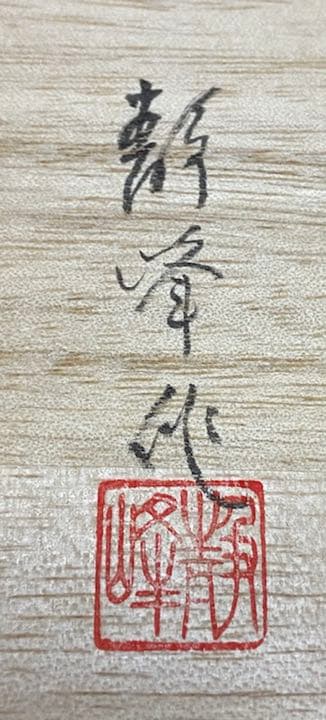 静峰作
静峰